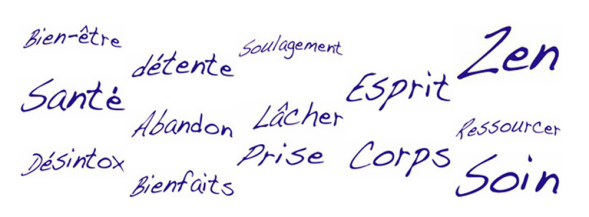 Bien-être
détente
Soulagement
Esprit
Zen
Santé
Abandon
Lâcher
Prise
Corps
Ressourcer
Désintox
Bienfaits
Soin